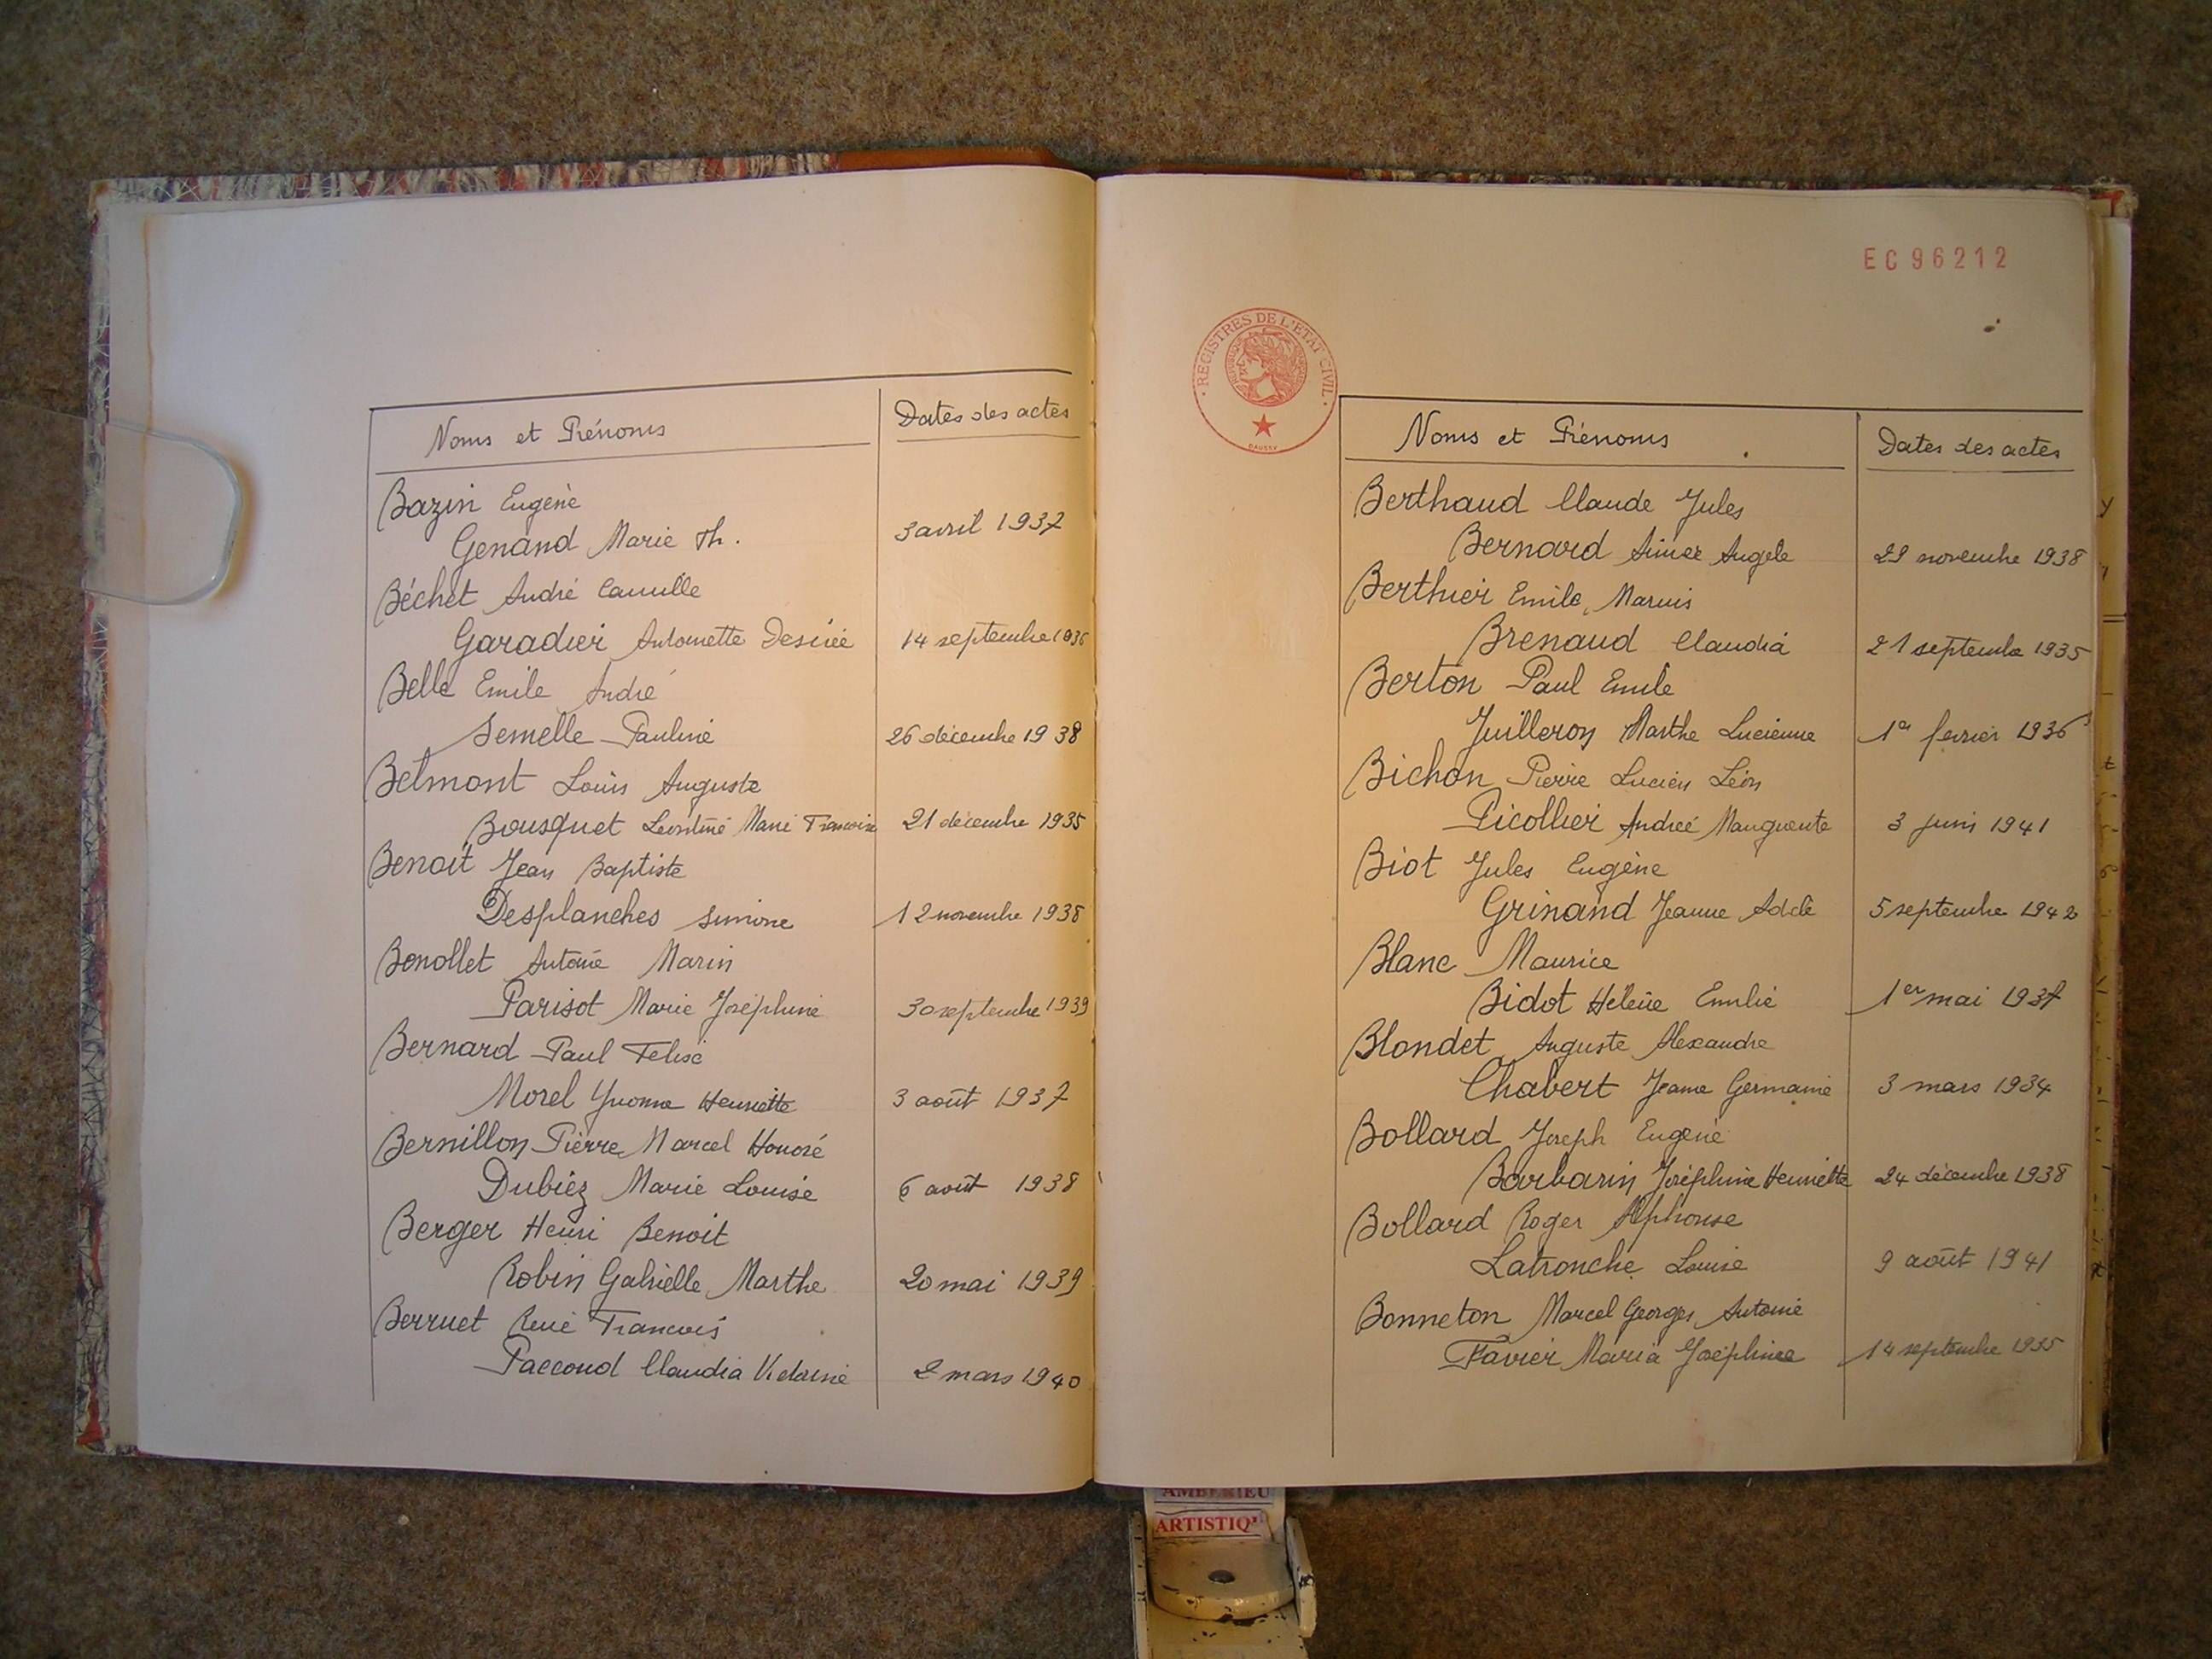 Noms et Prénoms Dates des actes
Bazin Eugène
Genand Marie Th. 3 avril 1937
Béchet André Camille
Garadier Antoinette Desirée 14 septembre 1936
Belle Emile André
Semelle Pauline 26 décembre 1938
Belmont Louis Auguste
Bousquet Leontine Marie Francoise 21 décembre 1935
Benoit Jean Baptiste
Desplanches Simone 12 novembre 1938
Benollet Antoine Marin
Parisot Marie Joséphine 30 septembre 1939
Bernard Paul Felise
Morel Yvonne Henriette 3 août 1937
Bernillon Pierre Marcel Honoré
Dubiez Marie Louise 6 août 1938
Berger Henri Benoit
Robin Gabrielle Marthe 20 mai 1939
Berruet René Francois
Paccoud Claudia Victorine 2 mars 1940
EC96212
· REGISTRES DE L'ETAT CIVIL ·
DAUSSY
Noms et Prénoms Dates des actes
Berthaud Claude Jules
Bernard Aimee Angele 29 novembre 1938
Berthier Emile Marius
Brenaud Claudia 21 septembre 1935
Berton Paul Emile
Juilleron Marthe Lucienne 1er fevrier 1936
Bichon Pierre Lucien Léon
Picollier Andrée Marguerite 3 juin 1941
Biot Jules Eugène
Grinand Jeanne Adele 5 septembre 1942
Blanc Maurice
Bidot Helène Emilie 1er mai 1937
Blondet Auguste Alexandre
Chabert Jeanne Germaine 3 mars 1934
Bollard Joseph Eugene
Barbarin Joséphine Henriette 24 décembre 1938
Bollard Roger Alphonse
Latronche Louise 9 août 1941
Bonneton Marcel Georges Antoine
Favier Maria Joséphine 14 septembre 1935
AMBERIEU
ARTISTIQ